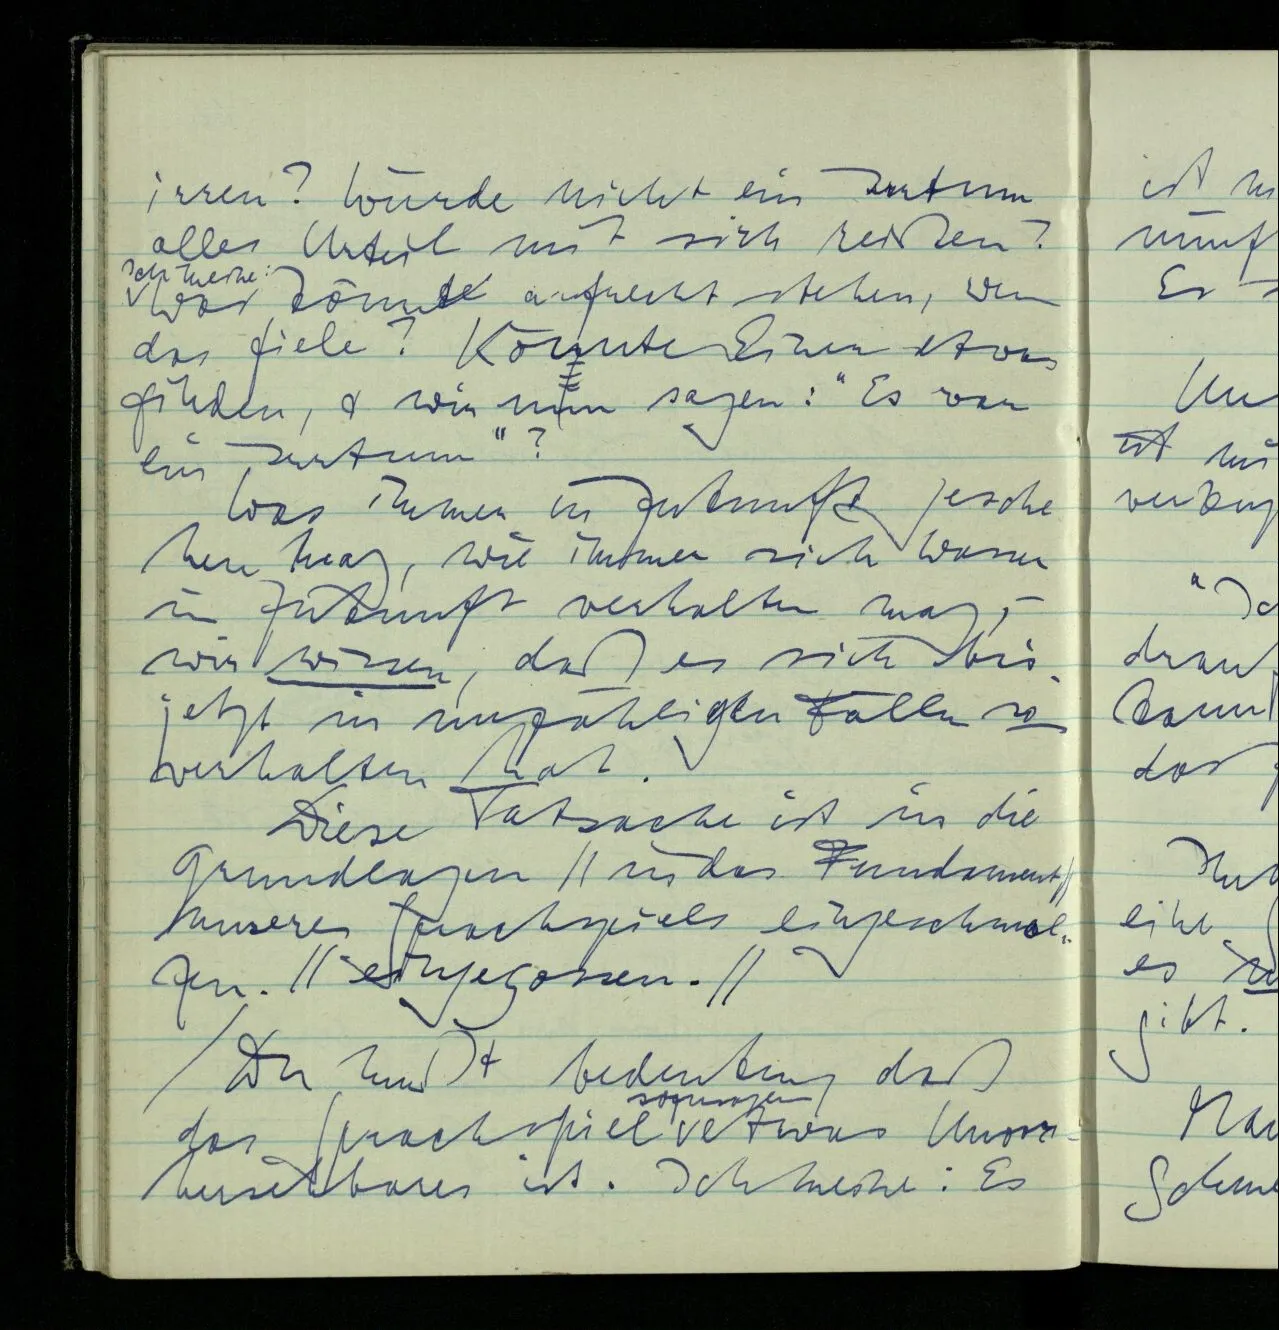 irren? Würde nicht ein Irrtum
alles Urteil mit sich reißen?
Ich meine:
Was könnte aufrecht stehen, wenn
das fiele? Könnte Einer etwas
finden, & wir nun sagen: "Es war
ein Irrtum"?
Was immer in Zukunft gesche
hen mag, wie immer sich Wasser
in Zukunft verhalten mag, –
wir wissen, daß es sich bis
jetzt in unzähligen Fällen so
verhalten hat.
Diese Tatsache ist in die
Grundlagen // in das Fundament //
unseres Sprachspiels eingeschmol-
zen. // eingegossen. //
/ Du mußt bedenken daß
sozusagen
das Sprachspiel etwas Unvor-
hersehbares ist. Ich meine: Es
ist ni
nünf
Es s
Un
ist mi
verkup
"Ic
drauf
kann
das
Im
eine
es
gibt.
Man
Schme